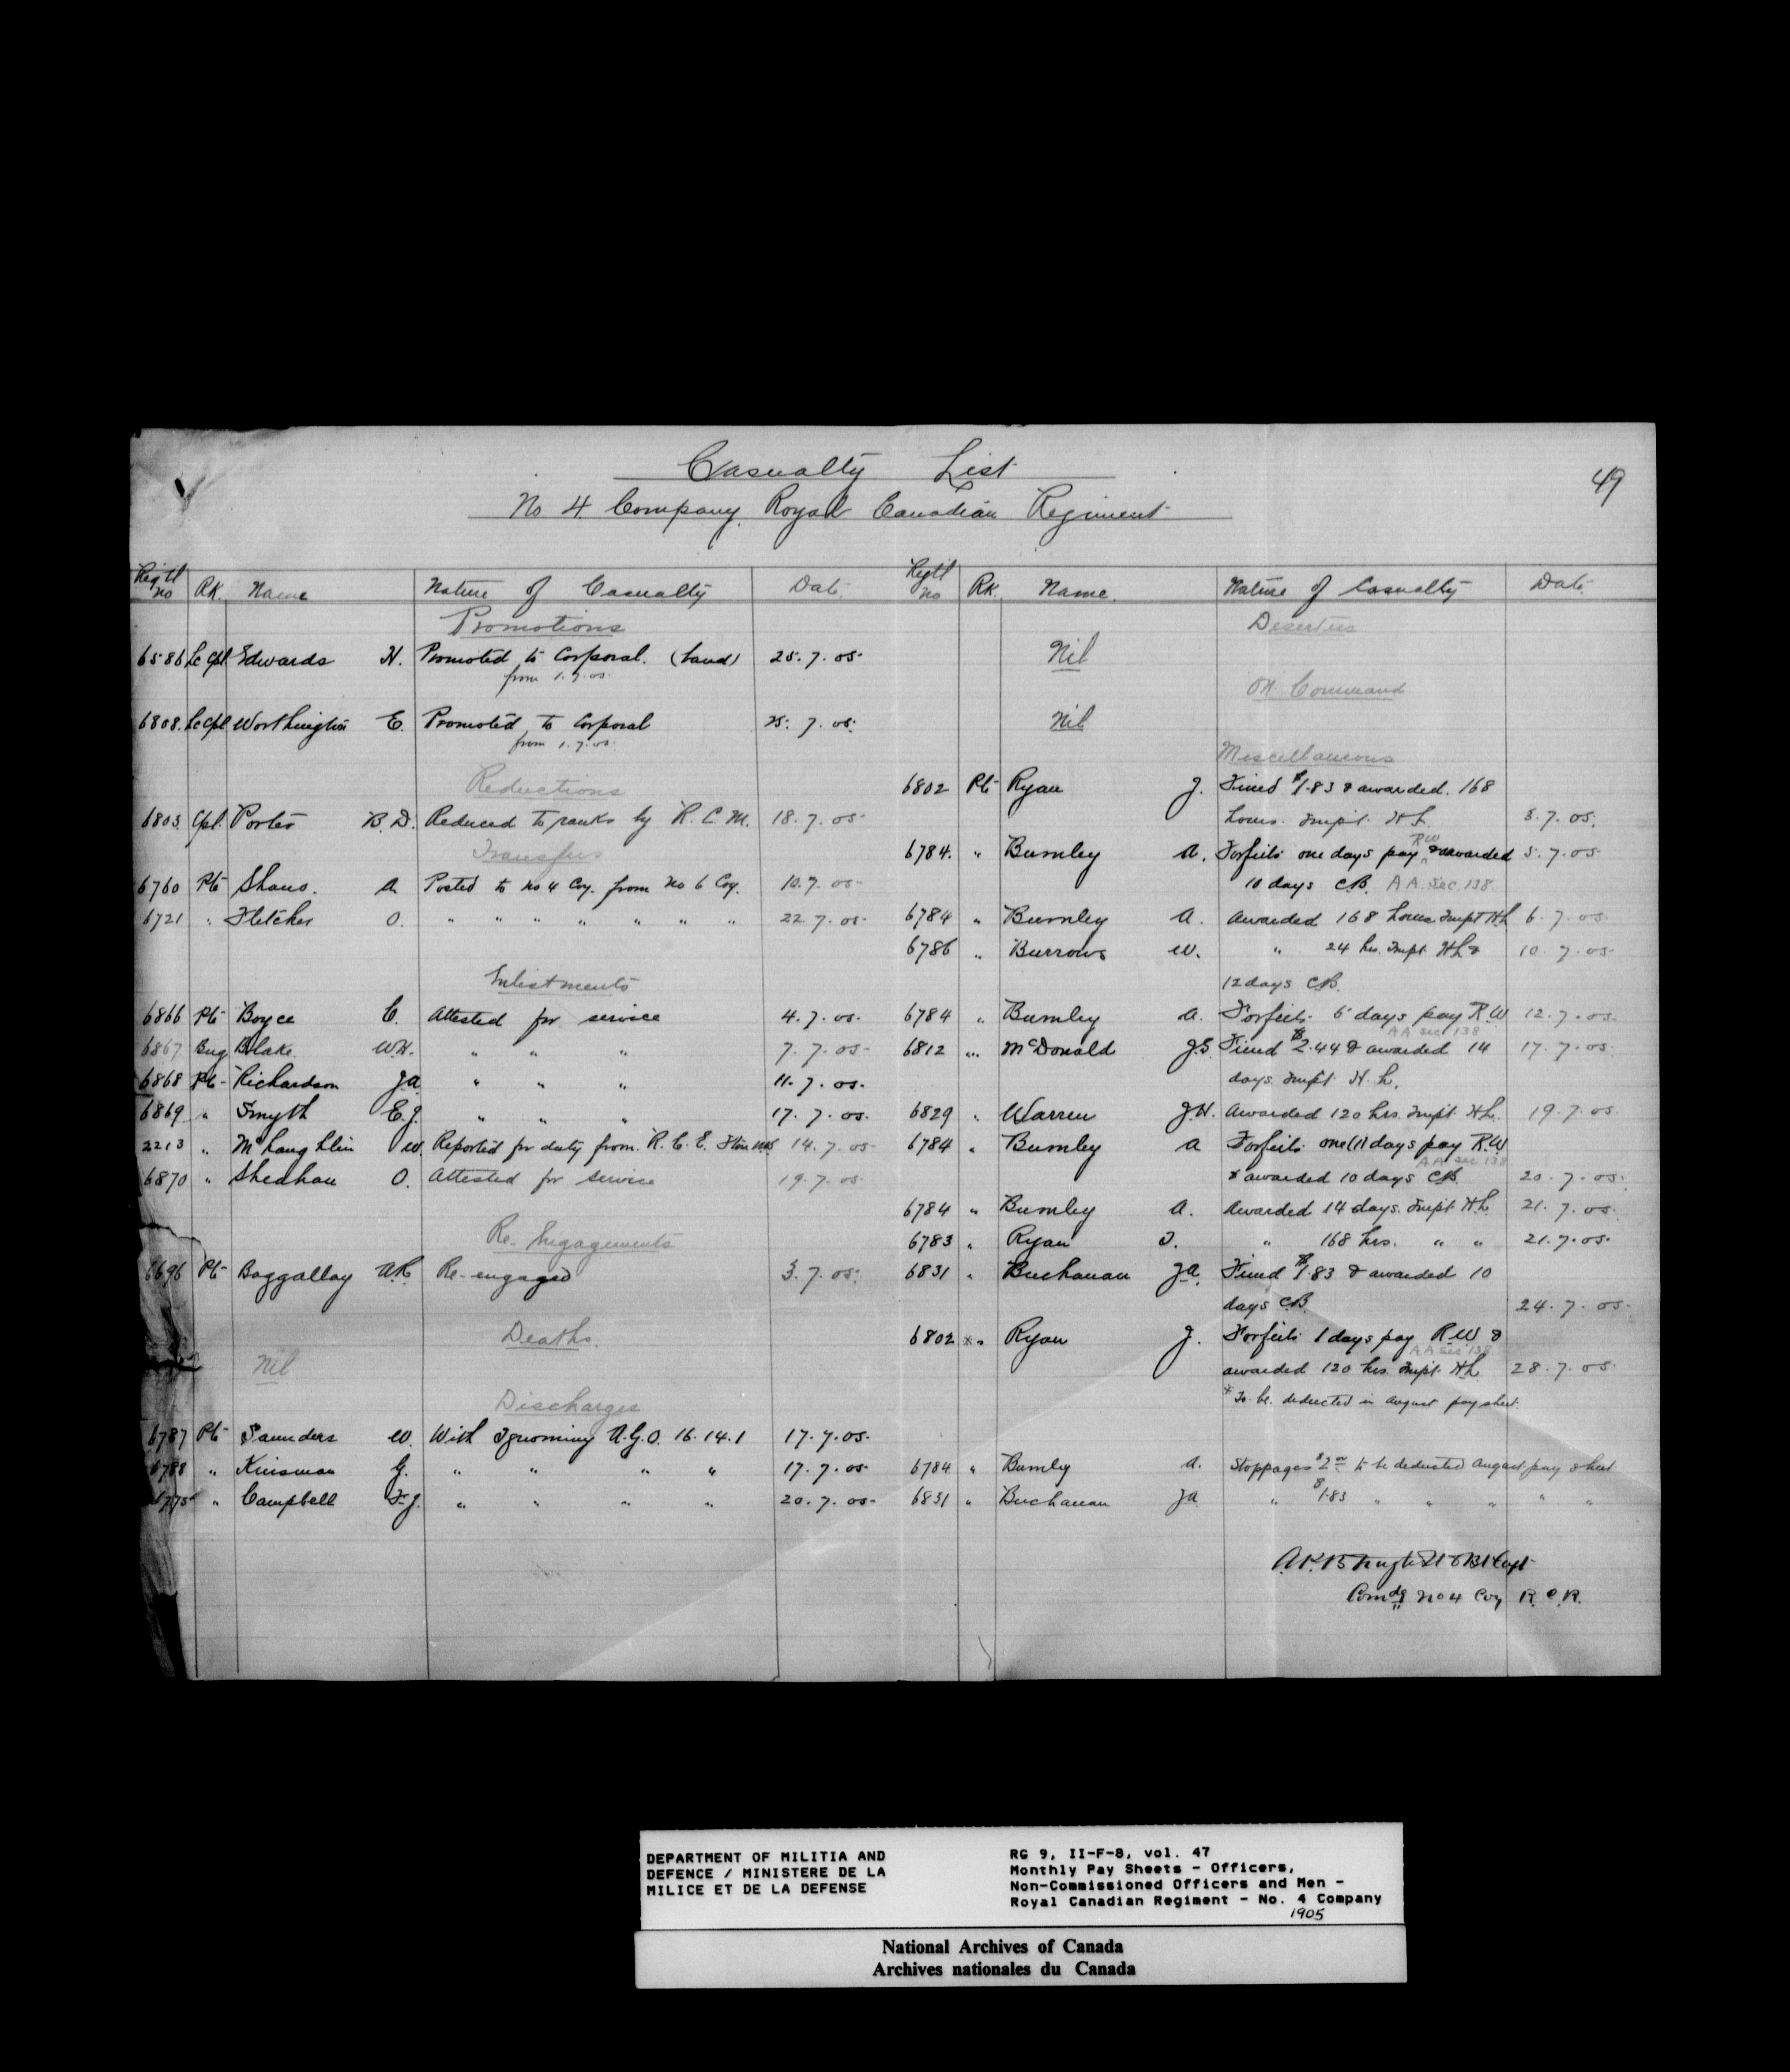 49
Casualty List
No 4 Company Royal Canadian Regiment
Regtl no Rk. Name Nature of Casualty Date
Promotions
6586 Lc Cpl Edwards H. Promoted to Corporal. 25.7.05
from 1.7.05
6808. Lc Cpl Worthington E. Promoted to Corporal 25.7.05.
from 1.7.05
Reductions
6803 Cpl. Porter B.D. Reduced to ranks by R.C.M. 18.7.05
Transfers
6760 Pte Shaw. A Posted to No 4 Coy. from No 6 Coy. 10.7.05
6721 " Fletcher O. " " " " " " " 22.7.05
Enlistments
6866 Pte Boyce C. Attested for service 4.7.05.
6867 Bug Blake. W.H. " " " 7.7.05
6868 Pte Richardson J.A " " " 11.7.05.
6869 " Smyth E.J. " " " 17.7.05.
2213 " McLaughlin W. Reported for duty from. R.C.E. 14.7.05
6870 " Sheahan O. Attested for service 19.7.05
Re-Engagements
6696 Pte Baggallay Re-engaged 3.7.05.
Deaths.
Nil
Discharges
6787 Pte Saunders W. With Ignominy A.G.O. 16.14.1 17.7.05.
6788 " Kinsman G. " " " " 17.7.05
6775 " Campbell F.J. " " " " 20.7.05
Regtl no Rk. Name. Nature of Casualty Date.
Deserters
Nil
On Command
Nil
Miscellaneous
6802 Pte Ryan J. Fined $1.83 & awarded. 168
hours. Impt. H.L. 3.7.05.
RW
6784. " Bumley A. Forfeits one days pay & awarded 5.7.05
10 days C.B. A A. Sec. 138
6784 " Bumley A. Awarded 168 hours Impt H.L 6.7.05
6786 " Burrows W. " 24 hrs. Impt. H.L & 10.7.05
12 days C.B.
6784 " Bumley A. Forfeits 6 days pay R.W 12.7.05.
A A Sec 138
6812 " McDonald J.S. Fined $2.44 & awarded 14 17.7.05
days Impt. H.L.
6829 " Warren J.H. Awarded 120 hrs. Impt. H.L. 19.7.05
6784 " Bumley A Forfeits one (1) days pay R.W
A A Sec 138
& awarded 10 days C.B. 20.7.05.
6784 " Bumley A. Awarded 14 days. Impt H.L 21.7.05
6783 " Ryan T. " 168 hrs. " " 21.7.05.
6831 " Buchanan J.A. Fined $1.83 & awarded 10
days C.B. 24.7.05.
6802 * " Ryan J. Forfeits 1 days pay R.W &
A A Sec 138
awarded 120 hrs. Impt. H.L. 28.7.05
* To be. deducted in August pay sheet.
6784 " Bumley A. Stoppages $2 00 to be deducted August pay sheet
6831 " Buchanan J.A " $1.83 " " " " "
Bt Capt
Comdg No 4 Coy R.C.R.
DEPARTMENT OF MILITIA AND
DEFENCE / MINISTERE DE LA
MILICE ET DE LA DEFENSE
RG 9, II-F-8, vol. 47
Monthly Pay Sheets - Officers,
Non-Commissioned Officers and Men -
Royal Canadian Regiment - No. 4 Company
1905
National Archives of Canada
Archives nationales du Canada